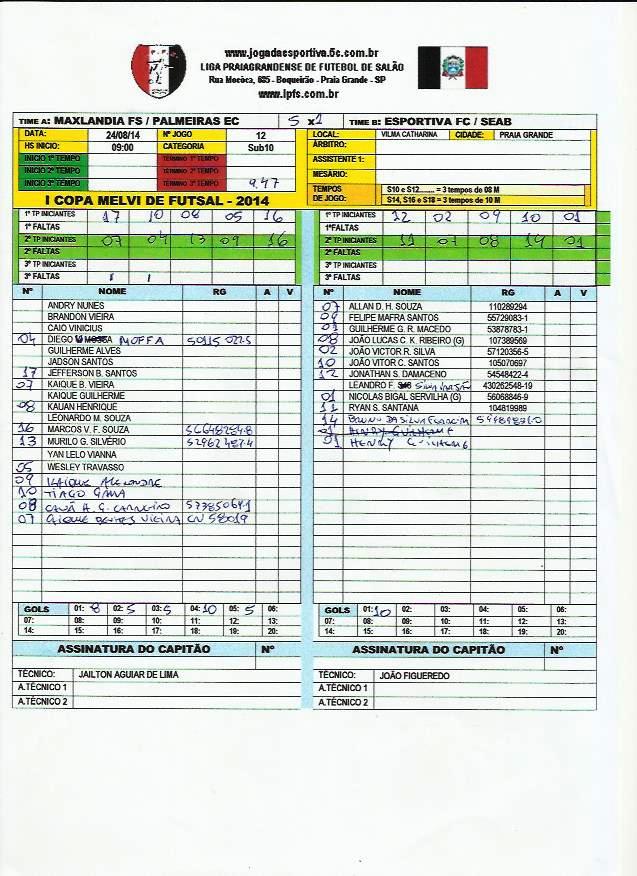 www.jogadaesportiva.5c.com.br
LIGA PRAIAGRANDENSE DE FUTEBOL DE SALÃO
Rua Mocóca, 685 - Boqueirão - Praia Grande - SP
www.lpfs.com.br
TIME A: MAXLANDIA FS / PALMEIRAS EC 5 x 1 TIME B: ESPORTIVA FC / SEAB
DATA: 24/08/14 Nº JOGO 12
HS INICIO: 09:00 CATEGORIA Sub10
INICIO 1º TEMPO TÉRMINO 1º TEMPO
INICIO 2º TEMPO TÉRMINO 2º TEMPO
INICIO 3º TEMPO TÉRMINO 3º TEMPO 9,47
I COPA MELVI DE FUTSAL - 2014
LOCAL: VILMA CATHARINA CIDADE: PRAIA GRANDE
ÁRBITRO:
ASSISTENTE 1:
MESÁRIO:
TEMPOS DE JOGO: S10 e S12........ = 3 tempos de 08 M
S14, S16 e S18 = 3 tempos de 10 M
1º TP INICIANTES 17 10 08 05 16
1ª FALTAS
2º TP INICIANTES 07 04 13 09 16
2ª FALTAS
3º TP INICIANTES
3ª FALTAS 1 1
1º TP INICIANTES 12 02 09 10 01
1ªFALTAS
2º TP INICIANTES 11 07 08 14 01
2ª FALTAS
3º TP INICIANTES
3ª FALTAS
Nº NOME RG A V
ANDRY NUNES
BRANDON VIEIRA
CAIO VINICIUS
04 DIEGO MOFFA 50115022-5
GUILHERME ALVES
JADSON SANTOS
17 JEFFERSON B. SANTOS
07 KAIQUE B. VIEIRA
KAIQUE GUILHERME
08 KAUAN HENRIQUE
LEONARDO M. SOUZA
16 MARCOS V. F. SOUZA
13 MURILO G. SILVÉRIO
YAN LELO VIANNA
05 WESLEY TRAVASSO
09
10 TIAGO GAMA
08
07 VIEIRA CN 58019
Nº NOME RG A V
07 ALLAN D. H. SOUZA 110289294
09 FELIPE MAFRA SANTOS 55729083-1
GUILHERME G. R. MACEDO 53878783-1
08 JOÃO LUCAS C. K. RIBEIRO (G) 107389569
02 JOÃO VICTOR R. SILVA 57120356-5
10 JOÃO VITOR C. SANTOS 105070697
12 JONATHAN S. DAMACENO 54548422-4
LEANDRO F. 430262548-19
01 NICOLAS BIGAL SERVILHA (G) 56068846-9
11 RYAN S. SANTANA 104819989
14 BRUNO DA SILVA
01 HENRY GUILHERME
01 HENRY GUILHERME
GOLS 01: 8 02: 5 03: 5 04: 10 05: 5 06:
07: 08: 09: 10: 11: 12: 13:
14: 15: 16: 17: 18: 19: 20:
GOLS 01: 10 02: 03: 04: 05: 06:
07: 08: 09: 10: 11: 12: 13:
14: 15: 16: 17: 18: 19: 20:
ASSINATURA DO CAPITÃO Nº
TÉCNICO: JAILTON AGUIAR DE LIMA
A.TÉCNICO 1
A.TÉCNICO 2
ASSINATURA DO CAPITÃO Nº
TÉCNICO: JOÃO FIGUEREDO
A.TÉCNICO 1
A.TÉCNICO 2